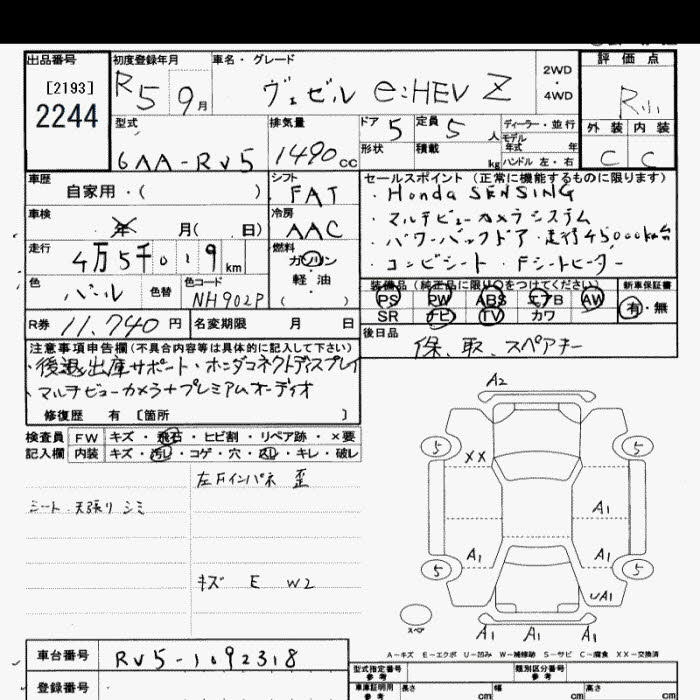 出品番号 初度登録年月 車名・グレード 評価点
[2193]
2244
R5 9月 ヴェゼル e:HEV Z
2WD
・
4WD
外装 内装
C C
型式 排気量 ドア 定員 ディーラー・並行
6AA-RV5 1490cc 5 5人
モデル
年式 年
形状 積載 kg ハンドル 左・右
車歴 シフト セールスポイント(正常に機能するものに限ります)
自家用・( ) FAT
・Honda SENSING
車検 冷房
年 月( 日) AAC
・マルチビューカメラシステム
・パワーバックドア・走行45000km台
走行 燃料
4万5千019km ガソリン
・
軽・油
( )
・コンビシート・Fシートヒーター
色 色替 色コード
パール NH902P
装備品(純正品に限り○をつけてください) 新車保証書
PS PW ABS エアB AW
SR ナビ TV カワ
有・無
R券 11,740円 名変期限 月 日
後日品
保、取、スペアキー
注意事項申告欄(不具合内容等は具体的に記入して下さい)
・後退出庫サポート・ホンダコネクトディスプレイ
・マルチビューカメラ+プレミアムオーディオ
修復歴 有 〔箇所 〕
検査員 FW キズ・飛石・ヒビ割・リペア跡・×要
記入欄 内装 キズ・汚レ・コゲ・穴・凹・キレ・破レ
左Fインパネ 歪
シート・天張り シミ
キズ E W2
A2
5 5
XX
A1
A1 A1
5 5
UA1
スペア
A1 A1 A1
A-キズ E-エクボ U-凹み W-補修跡 S-サビ C-腐食 XX-交換済
車台番号 RV5-1092318
登録番号
型式指定番号 類別区分番号
参考 参考
車庫証明用 長さ 幅 高さ
参考 cm cm cm